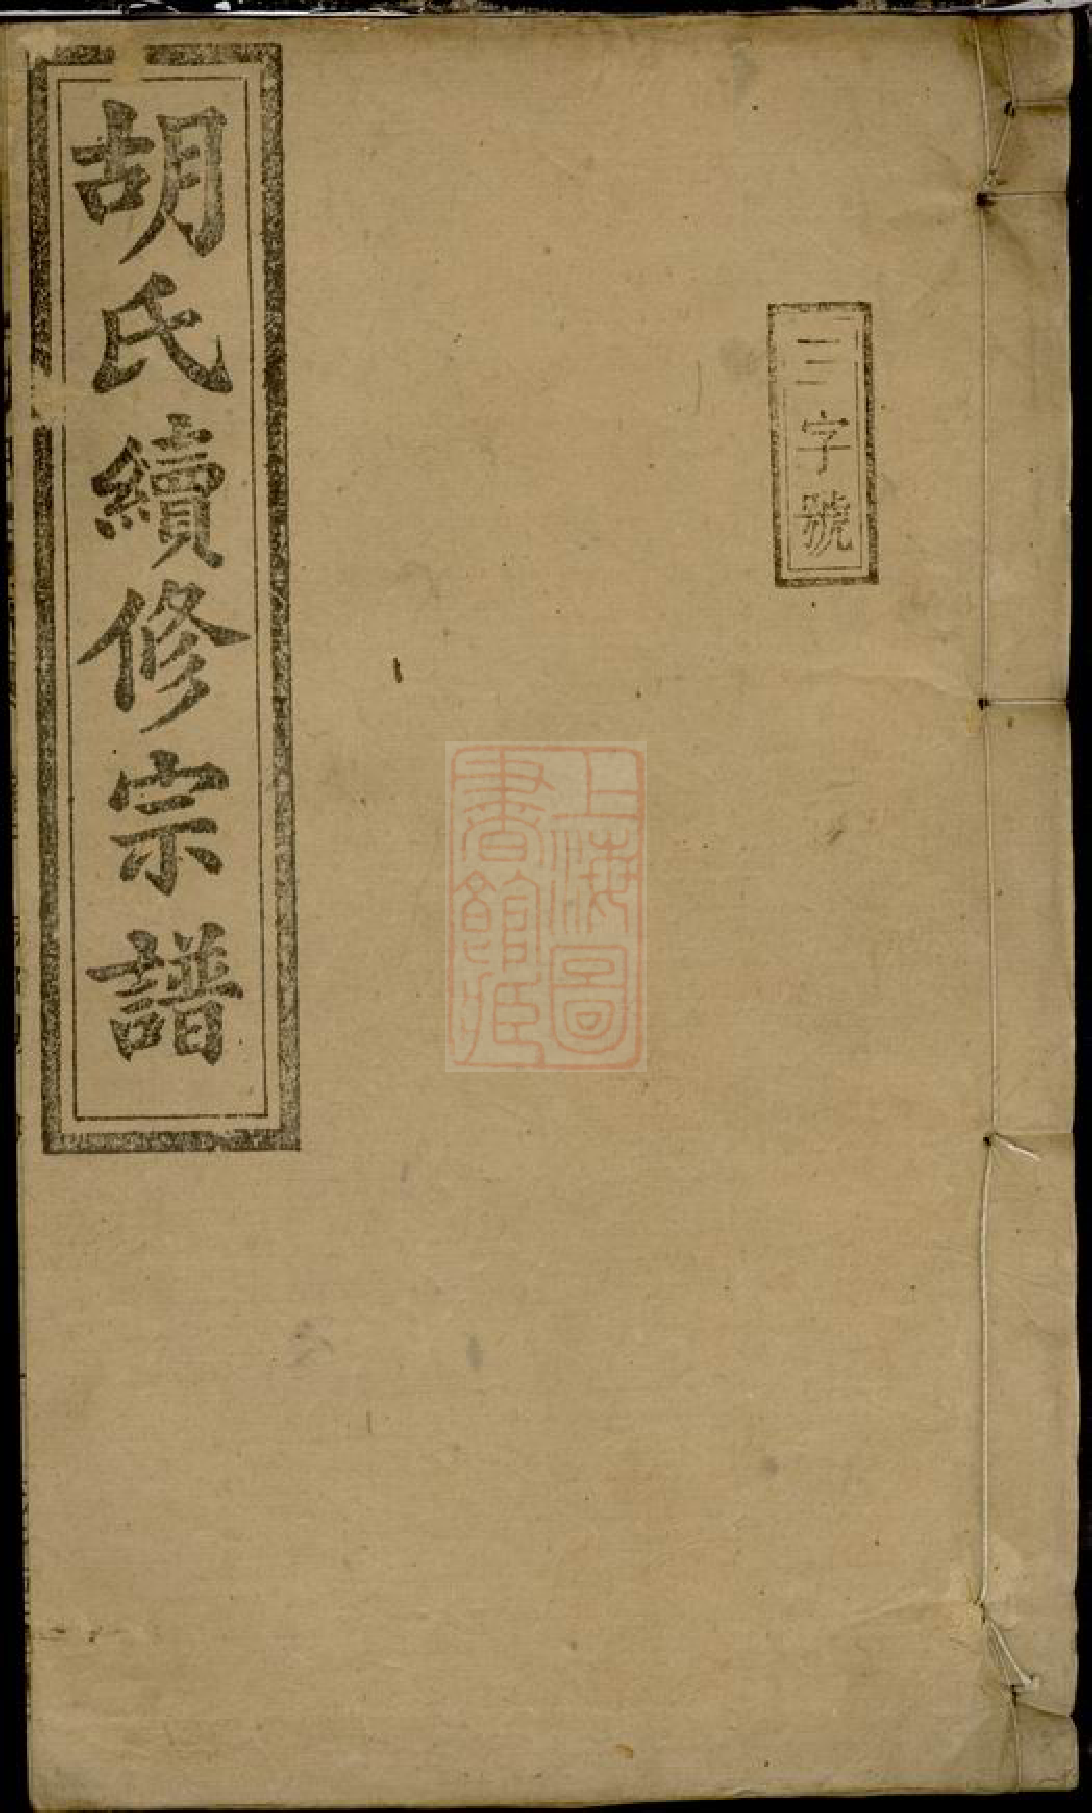 三字號
上海圖書館藏
胡氏續修宗譜